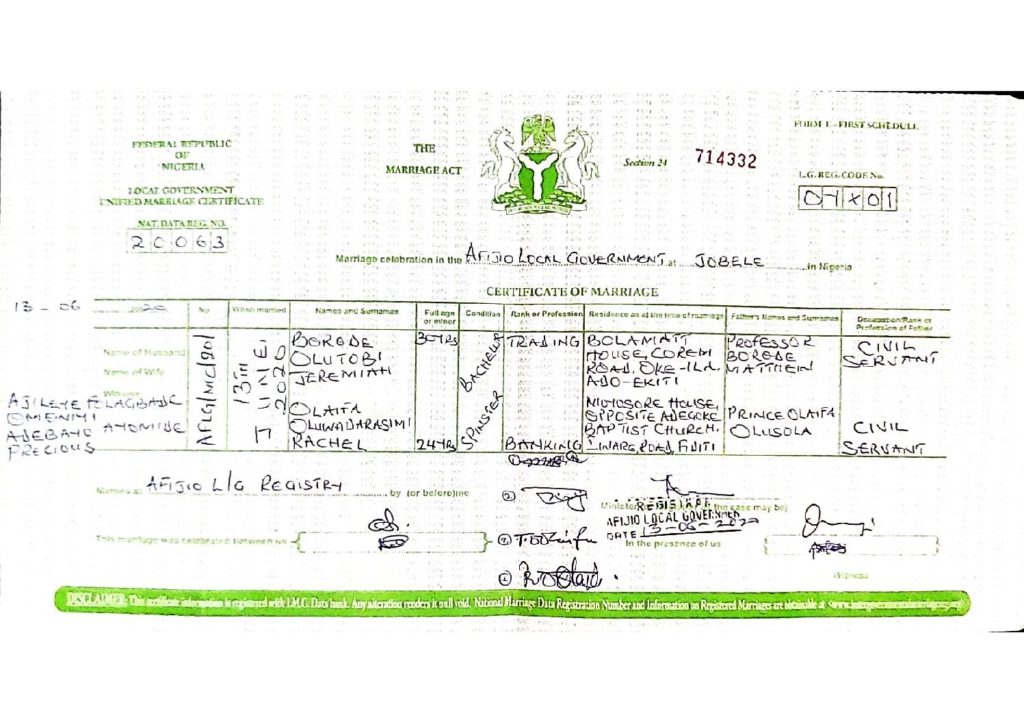 FEDERAL REPUBLIC
OF
NIGERIA
LOCAL GOVERNMENT
UNIFIED MARRIAGE CERTIFICATE
NAT. DATA REG. NO.
20063
THE
MARRIAGE ACT
Section 24
714332
FORM E - FIRST SCHEDULE
L.G. REG. CODE No.
Marriage celebration in the AFIJIO LOCAL GOVERNMENT at JOBELE in Nigeria
CERTIFICATE OF MARRIAGE
13 - 06 2020
No
When married
Names and Surnames
Full age or minor
Condition
Rank or Profession
Residence as at the time of marriage
Father's Names and Surnames
Occupation/Rank or Profession of Father
Name of Husband
Name of Wife
Witness
AFLG/NIC/201
13TH JUNE
2020
BORODE
OLUTOBI
JEREMIAH
30YRS
BACHELOR
TRADING
BOLAMATT
HOUSE, COREM
ROAD, OKE-ILA,
ADO-EKITI
PROFESSOR
BORODE
MATTHEW
CIVIL
SERVANT
OLAIFA
OLUWADARASIMI
RACHEL
24YRS
SPINSTER
BANKING
HOUSE,
OPPOSITE ADEGOKE
BAPTIST CHURCH,
ROAD, FIDITI
PRINCE OLAIFA
OLUSOLA
CIVIL
SERVANT
ADEBAYO AYOMIDE
PRECIOUS
AFIJIO L/G REGISTRY by (or before) me
Minister (as the case may be)
REGISTRAR
AFIJIO LOCAL GOVERNMEN
DATE 13-06-2020
This marriage was celebrated between us
In the presence of us
Witness
DISCLAIMER: This certificate information is registered with I.M.C. Data bank. Any alteration renders it null void. National Marriage Data Registration Number and Information on Registered Marriages are obtainable at